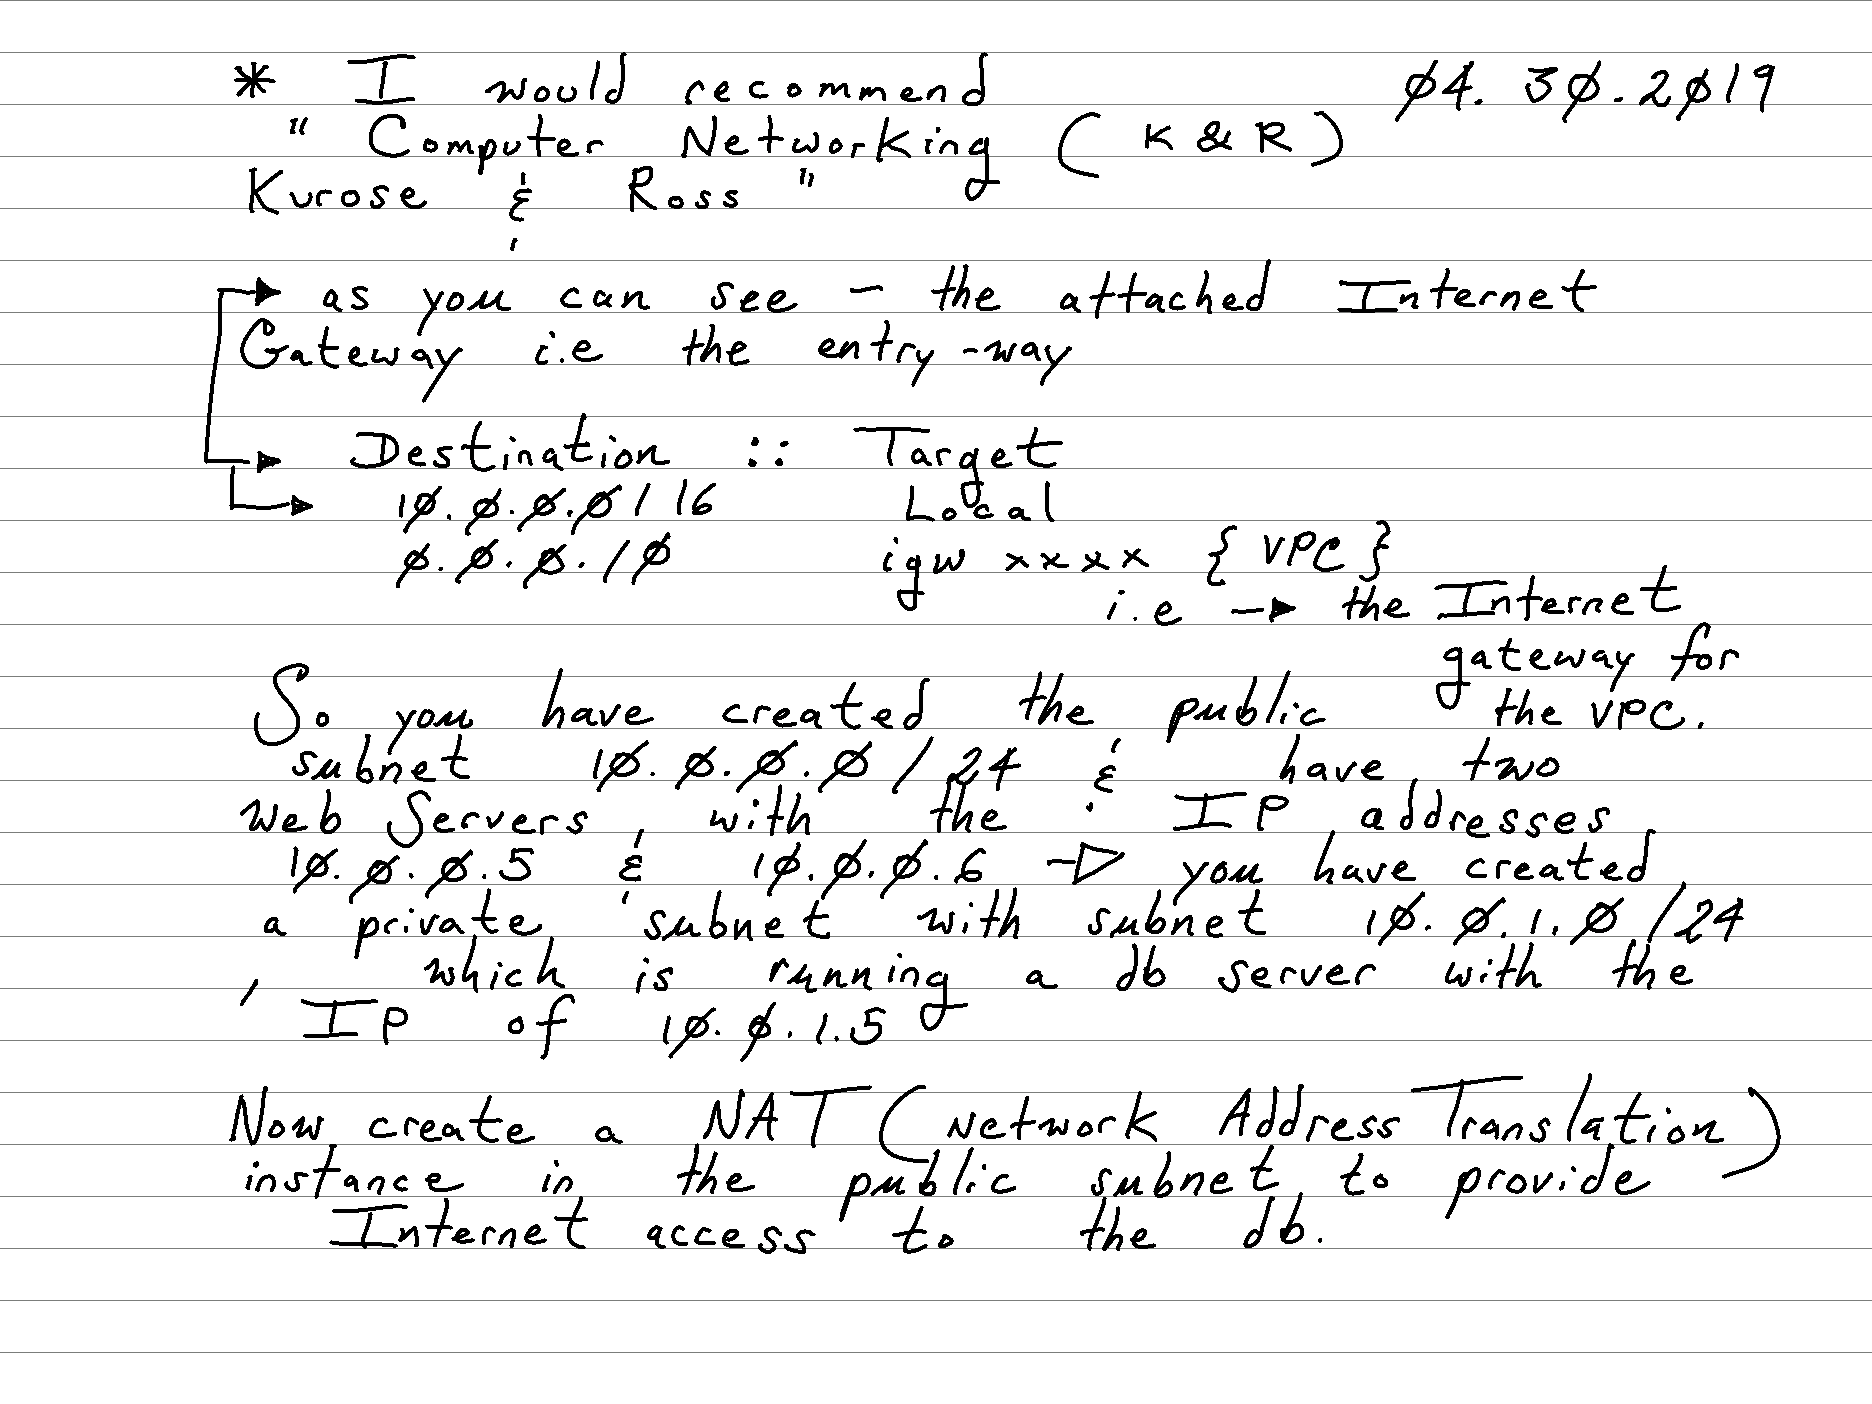 * I would recommend 04.30.2019
" Computer Networking ( K & R )
Kurose & Ross "
as you can see - the attached Internet
Gateway i.e the entry-way
Destination :: Target
10.0.0.0/16 Local
0.0.0./0 igw xxxx { VPC }
i.e → the Internet
gateway for
So you have created the public the VPC.
subnet 10.0.0.0/24 & have two
Web Servers, with the IP addresses
10.0.0.5 & 10.0.0.6 → you have created
a private subnet with subnet 10.0.1.0/24
, which is running a db server with the
IP of 10.0.1.5
Now create a NAT (Network Address Translation)
instance in the public subnet to provide
Internet access to the db.